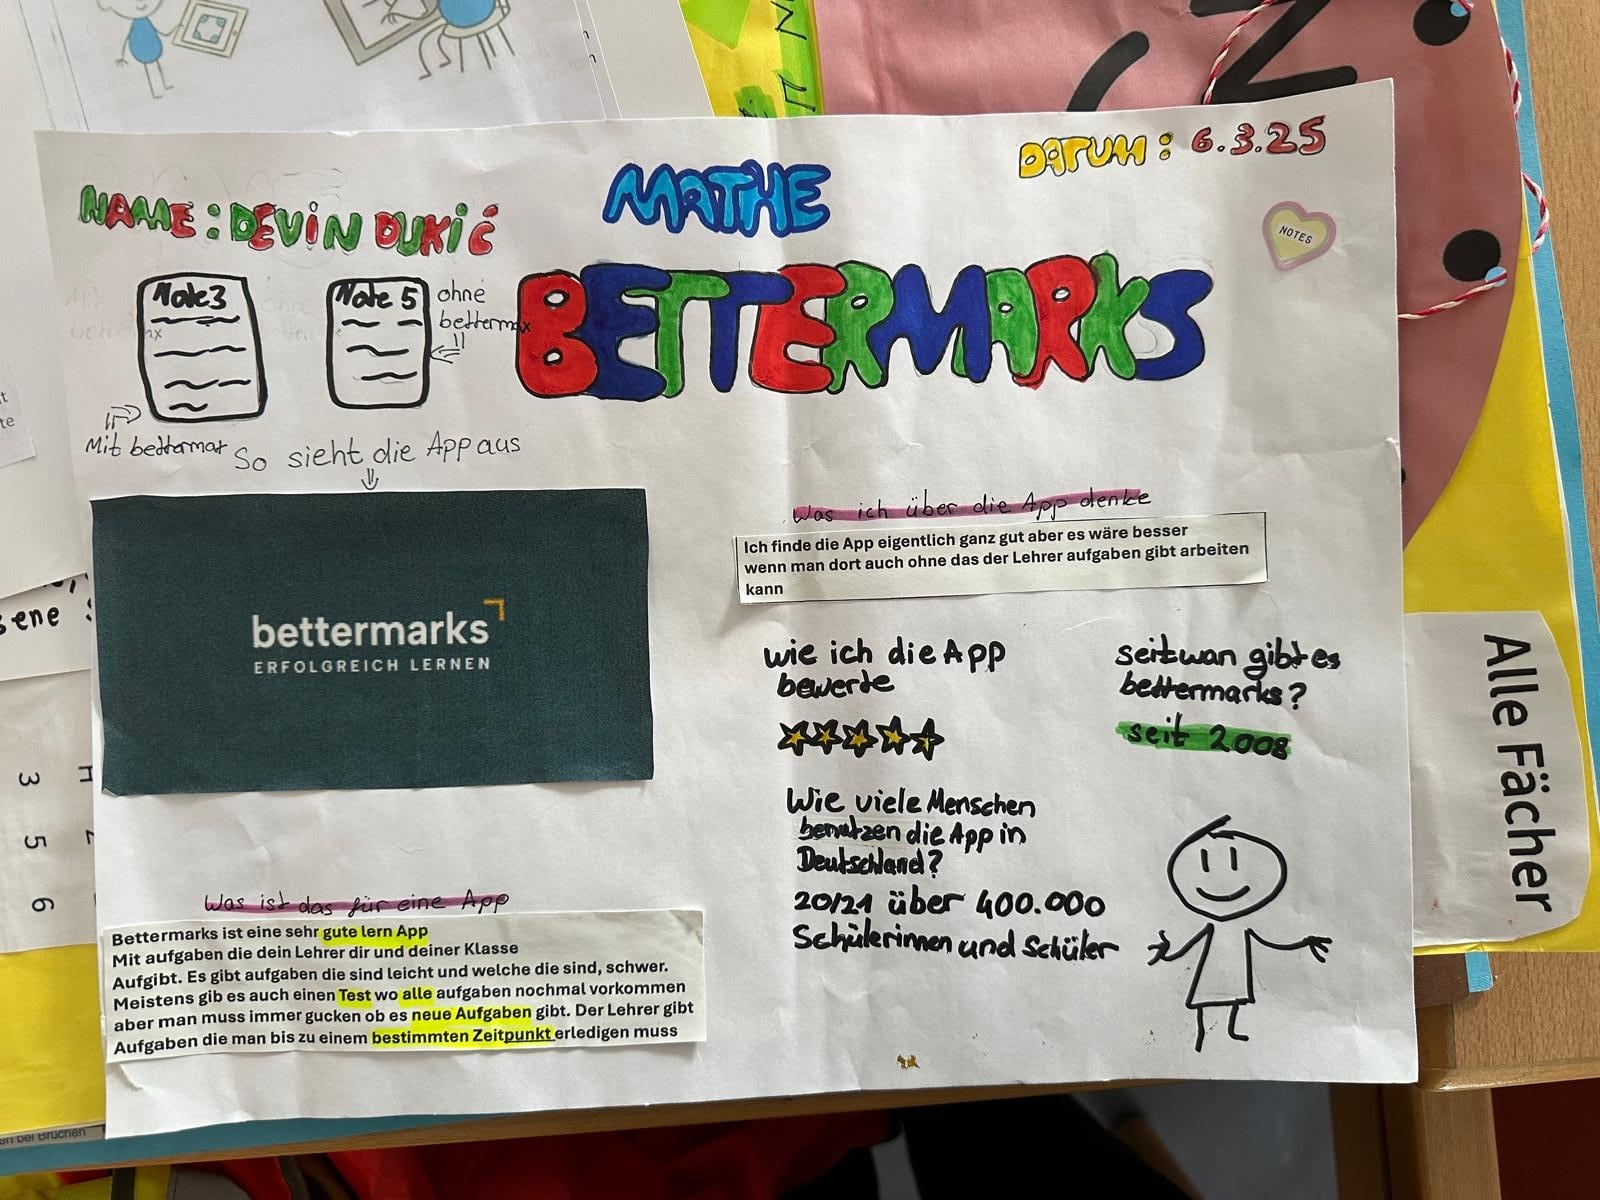 NAME: DEVIN DUKIĆ
MATHE
DATUM: 6.3.25
NOTES
BETTERMARKS
Note 3
Note 5
ohne
bettermax
Mit bettermax
So sieht die App aus
bettermarks
ERFOLGREICH LERNEN
Was ist das für eine App
Bettermarks ist eine sehr gute lern App
Mit aufgaben die dein Lehrer dir und deiner Klasse
Aufgibt. Es gibt aufgaben die sind leicht und welche die sind, schwer.
Meistens gib es auch einen Test wo alle aufgaben nochmal vorkommen
aber man muss immer gucken ob es neue Aufgaben gibt. Der Lehrer gibt
Aufgaben die man bis zu einem bestimmten Zeitpunkt erledigen muss
Was ich über die App denke
Ich finde die App eigentlich ganz gut aber es wäre besser
wenn man dort auch ohne das der Lehrer aufgaben gibt arbeiten
kann
wie ich die App
bewerte
seitwan gibt es
bettermarks?
seit 2008
Wie viele Menschen
benutzen die App in
Deutschland?
20/21 über 400.000
Schülerinnen und Schüler
Alle Fächer
3
5
6
en bei Brüchen